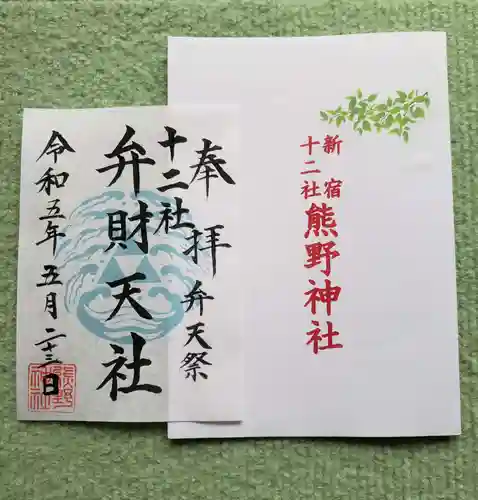 奉拝
弁天祭
十二社
弁財天社
令和五年五月二十三日
新宿
十二社
熊野神社